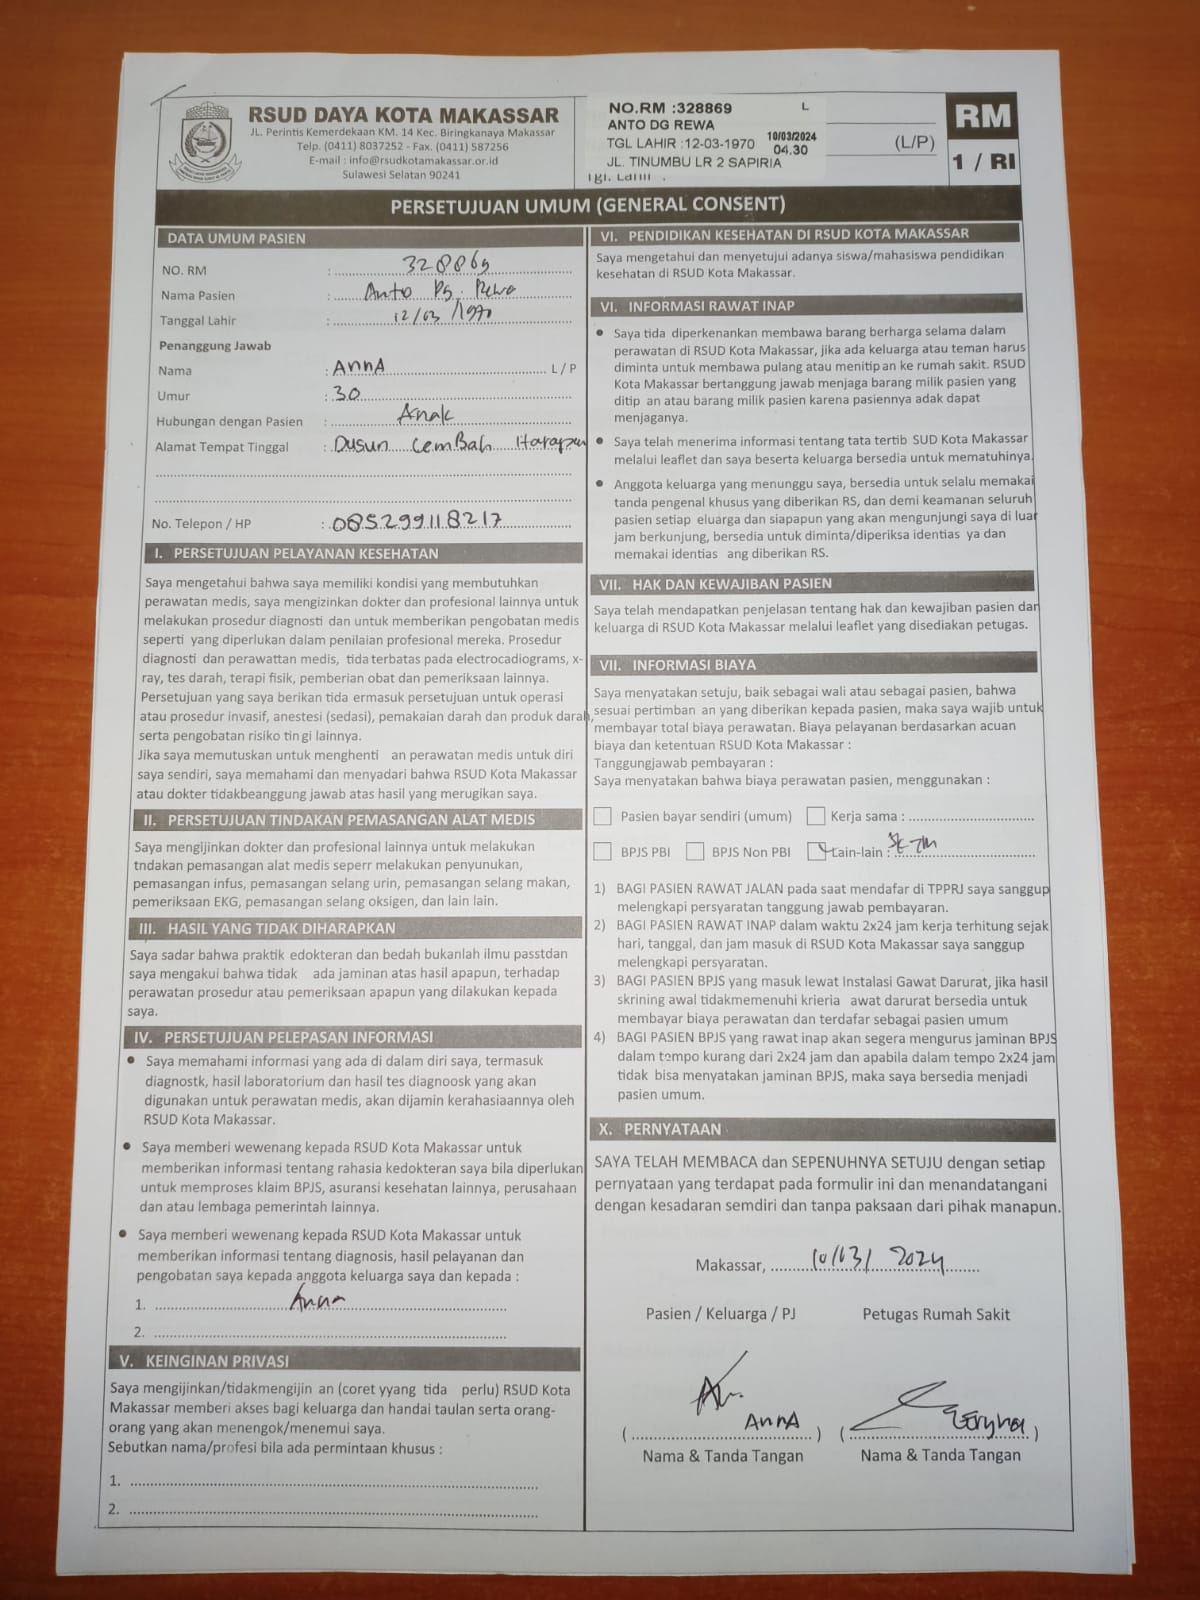 RSUD DAYA KOTA MAKASSAR
JL. Perintis Kemerdekaan KM. 14 Kec. Biringkanaya Makassar
Telp. (0411) 8037252 - Fax. (0411) 587256
E-mail : info@rsudkotamakassar.or.id
Sulawesi Selatan 90241
NO.RM :328869 L
ANTO DG REWA
TGL LAHIR :12-03-1970 10/03/2024
04.30
JL. TINUMBU LR 2 SAPIRIA
(L/P)
RM
1 / RI
PERSETUJUAN UMUM (GENERAL CONSENT)
DATA UMUM PASIEN
NO. RM : 328869
Nama Pasien : Anto Dg. Rewa
Tanggal Lahir : 12/03/1970
Penanggung Jawab
Nama : AnnA L / P
Umur : 30
Hubungan dengan Pasien : Anak
Alamat Tempat Tinggal : Dusun Lembah Harapan
No. Telepon / HP : 085299118217
I. PERSETUJUAN PELAYANAN KESEHATAN
Saya mengetahui bahwa saya memiliki kondisi yang membutuhkan
perawatan medis, saya mengizinkan dokter dan profesional lainnya untuk
melakukan prosedur diagnosti dan untuk memberikan pengobatan medis
seperti yang diperlukan dalam penilaian profesional mereka. Prosedur
diagnosti dan perawattan medis, tida terbatas pada electrocadiograms, x-
ray, tes darah, terapi fisik, pemberian obat dan pemeriksaan lainnya.
Persetujuan yang saya berikan tida ermasuk persetujuan untuk operasi
atau prosedur invasif, anestesi (sedasi), pemakaian darah dan produk darah,
serta pengobatan risiko tin gi lainnya.
Jika saya memutuskan untuk menghenti an perawatan medis untuk diri
saya sendiri, saya memahami dan menyadari bahwa RSUD Kota Makassar
atau dokter tidakbeanggung jawab atas hasil yang merugikan saya.
II. PERSETUJUAN TINDAKAN PEMASANGAN ALAT MEDIS
Saya mengijinkan dokter dan profesional lainnya untuk melakukan
tndakan pemasangan alat medis seperr melakukan penyunukan,
pemasangan infus, pemasangan selang urin, pemasangan selang makan,
pemeriksaan EKG, pemasangan selang oksigen, dan lain lain.
III. HASIL YANG TIDAK DIHARAPKAN
Saya sadar bahwa praktik edokteran dan bedah bukanlah ilmu passtdan
saya mengakui bahwa tidak ada jaminan atas hasil apapun, terhadap
perawatan prosedur atau pemeriksaan apapun yang dilakukan kepada
saya.
IV. PERSETUJUAN PELEPASAN INFORMASI
• Saya memahami informasi yang ada di dalam diri saya, termasuk
diagnostk, hasil laboratorium dan hasil tes diagnoosk yang akan
digunakan untuk perawatan medis, akan dijamin kerahasiaannya oleh
RSUD Kota Makassar.
• Saya memberi wewenang kepada RSUD Kota Makassar untuk
memberikan informasi tentang rahasia kedokteran saya bila diperlukan
untuk memproses klaim BPJS, asuransi kesehatan lainnya, perusahaan
dan atau lembaga pemerintah lainnya.
• Saya memberi wewenang kepada RSUD Kota Makassar untuk
memberikan informasi tentang diagnosis, hasil pelayanan dan
pengobatan saya kepada anggota keluarga saya dan kepada :
1. Anna
2.
V. KEINGINAN PRIVASI
Saya mengijinkan/tidakmengijin an (coret yyang tida perlu) RSUD Kota
Makassar memberi akses bagi keluarga dan handai taulan serta orang-
orang yang akan menengok/menemui saya.
Sebutkan nama/profesi bila ada permintaan khusus :
1.
2.
VI. PENDIDIKAN KESEHATAN DI RSUD KOTA MAKASSAR
Saya mengetahui dan menyetujui adanya siswa/mahasiswa pendidikan
kesehatan di RSUD Kota Makassar.
VI. INFORMASI RAWAT INAP
• Saya tida diperkenankan membawa barang berharga selama dalam
perawatan di RSUD Kota Makassar, jika ada keluarga atau teman harus
diminta untuk membawa pulang atau menitip an ke rumah sakit. RSUD
Kota Makassar bertanggung jawab menjaga barang milik pasien yang
ditip an atau barang milik pasien karena pasiennya adak dapat
menjaganya.
• Saya telah menerima informasi tentang tata tertib SUD Kota Makassar
melalui leaflet dan saya beserta keluarga bersedia untuk mematuhinya.
• Anggota keluarga yang menunggu saya, bersedia untuk selalu memakai
tanda pengenal khusus yang diberikan RS, dan demi keamanan seluruh
pasien setiap eluarga dan siapapun yang akan mengunjungi saya di luar
jam berkunjung, bersedia untuk diminta/diperiksa identias ya dan
memakai identias ang diberikan RS.
VII. HAK DAN KEWAJIBAN PASIEN
Saya telah mendapatkan penjelasan tentang hak dan kewajiban pasien dan
keluarga di RSUD Kota Makassar melalui leaflet yang disediakan petugas.
VII. INFORMASI BIAYA
Saya menyatakan setuju, baik sebagai wali atau sebagai pasien, bahwa
sesuai pertimban an yang diberikan kepada pasien, maka saya wajib untuk
membayar total biaya perawatan. Biaya pelayanan berdasarkan acuan
biaya dan ketentuan RSUD Kota Makassar :
Tanggungjawab pembayaran :
Saya menyatakan bahwa biaya perawatan pasien, menggunakan :
Pasien bayar sendiri (umum) Kerja sama :
BPJS PBI BPJS Non PBI Lain-lain :
1) BAGI PASIEN RAWAT JALAN pada saat mendafar di TPPRJ saya sanggup
melengkapi persyaratan tanggung jawab pembayaran.
2) BAGI PASIEN RAWAT INAP dalam waktu 2x24 jam kerja terhitung sejak
hari, tanggal, dan jam masuk di RSUD Kota Makassar saya sanggup
melengkapi persyaratan.
3) BAGI PASIEN BPJS yang masuk lewat Instalasi Gawat Darurat, jika hasil
skrining awal tidakmemenuhi krieria awat darurat bersedia untuk
membayar biaya perawatan dan terdafar sebagai pasien umum
4) BAGI PASIEN BPJS yang rawat inap akan segera mengurus jaminan BPJS
dalam tempo kurang dari 2x24 jam dan apabila dalam tempo 2x24 jam
tidak bisa menyatakan jaminan BPJS, maka saya bersedia menjadi
pasien umum.
X. PERNYATAAN
SAYA TELAH MEMBACA dan SEPENUHNYA SETUJU dengan setiap
pernyataan yang terdapat pada formulir ini dan menandatangani
dengan kesadaran semdiri dan tanpa paksaan dari pihak manapun.
Makassar, 10/03/2024
Pasien / Keluarga / PJ Petugas Rumah Sakit
( AnnA ) ( )
Nama & Tanda Tangan Nama & Tanda Tangan